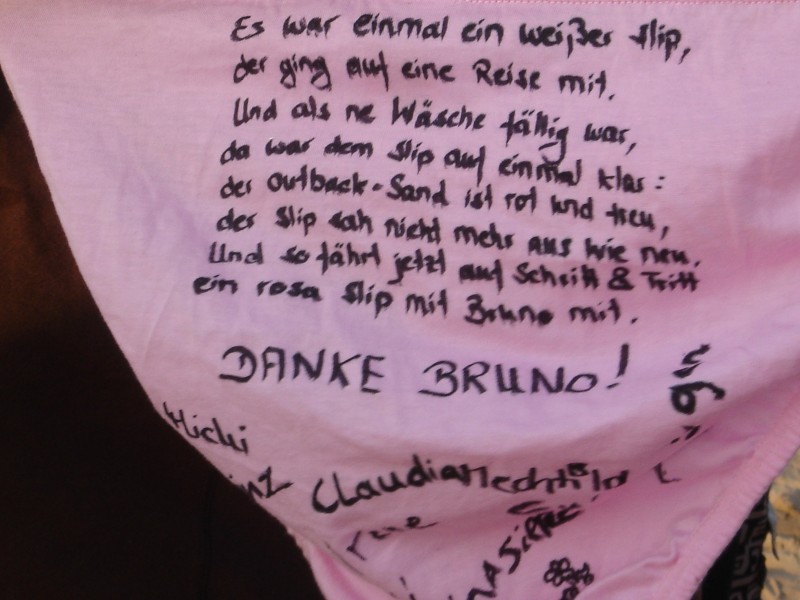 Es war einmal ein weißer Slip,
der ging auf eine Reise mit.
Und als ne Wäsche fällig war,
da war dem Slip auf einmal klar:
der Outback-Sand ist rot und treu,
der Slip sah nicht mehr aus wie neu.
Und so fährt jetzt auf Schritt & Tritt
ein rosa Slip mit Bruno mit.
DANKE BRUNO!
Michi
Claudia Mechthild
Silke